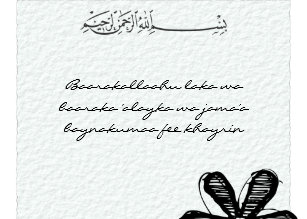 بِسْمِ اللهِ الرَّحْمٰنِ الرَّحِيْمِ
Baarakallaahu laka wa
baaraka 'alayka wa jama'a
baynakumaa fee khayrin